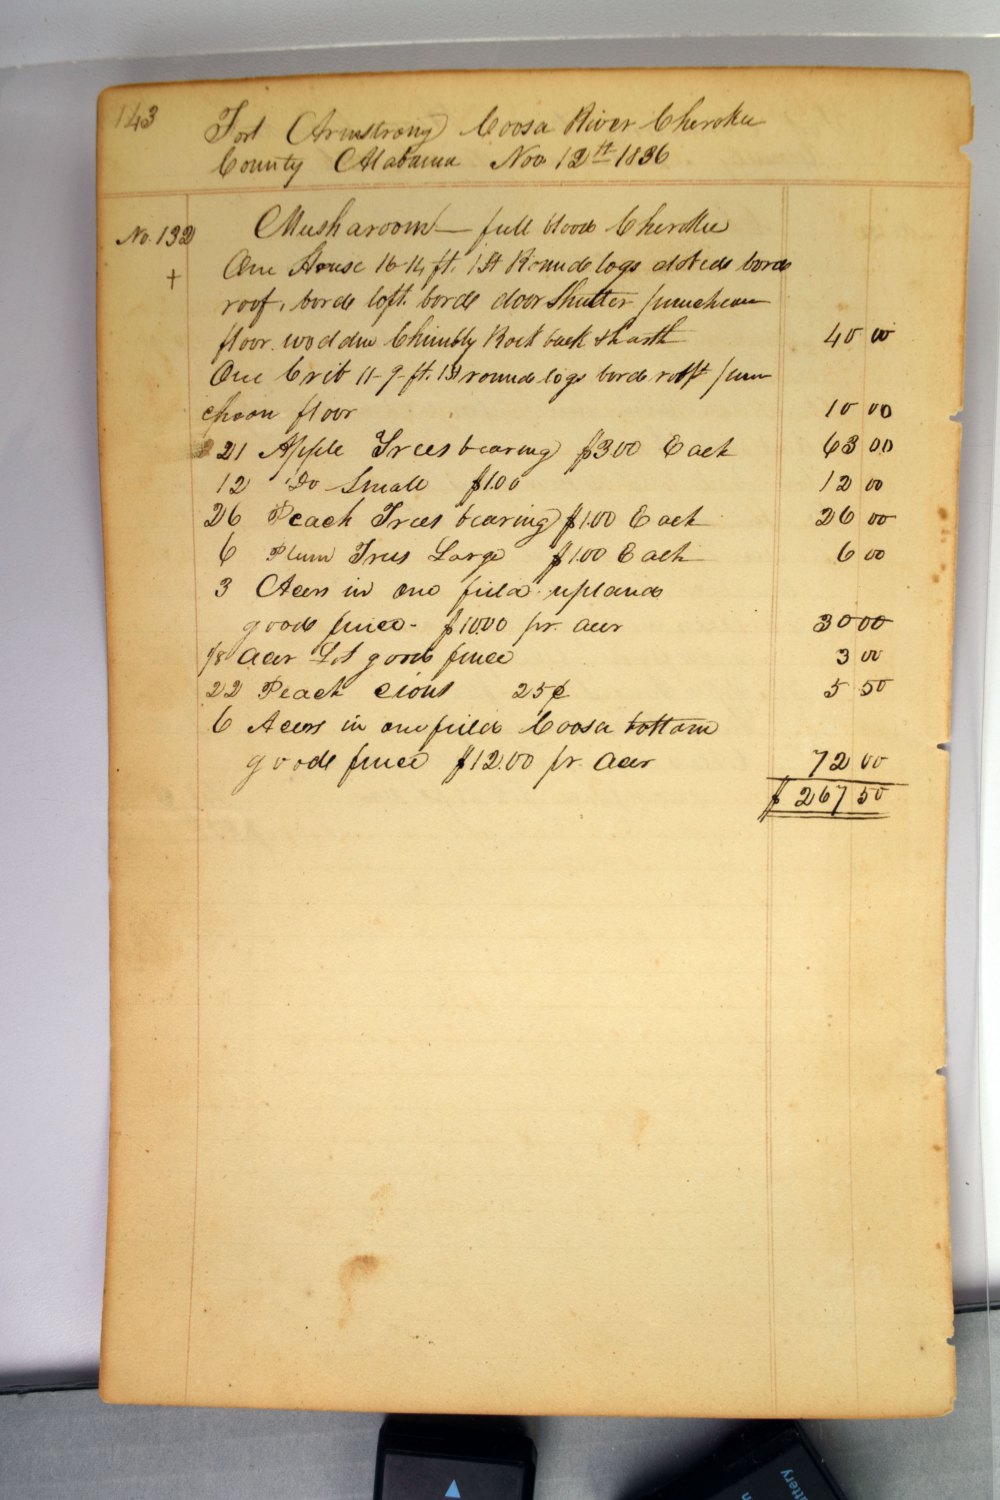 143
Fort Armstrong Coosa River Cherokee
County Alabama Nov 12th 1836
No. 132 Musharoom — full blood Cherokee
+ One House 16-14 ft. 1 St Round logs dobed bord
roof, bord loft. bord door Shutter puncheon
floor. wooden Chimbly Rock back & harth 40 00
One Crib 11-9-ft. 1 St round logs bord rooft pun
cheon floor 10 00
21 Apple Trees bearing $3.00 Each 63 00
12 Do Small $1.00 12 00
26 Peach Trees bearing $1.00 Each 26 00
6 Plum Trees Large $1.00 Each 6 00
3 Acers in one field uplands
goods fence - $10.00 pr. acer 30 00
1/8 acer Lot goods fence 3 00
22 Peach cions 25¢ 5 50
6 Acers in one field Coosa bottom
goode fence $12.00 pr. acer 72 00
$ 267 50
ttery
n